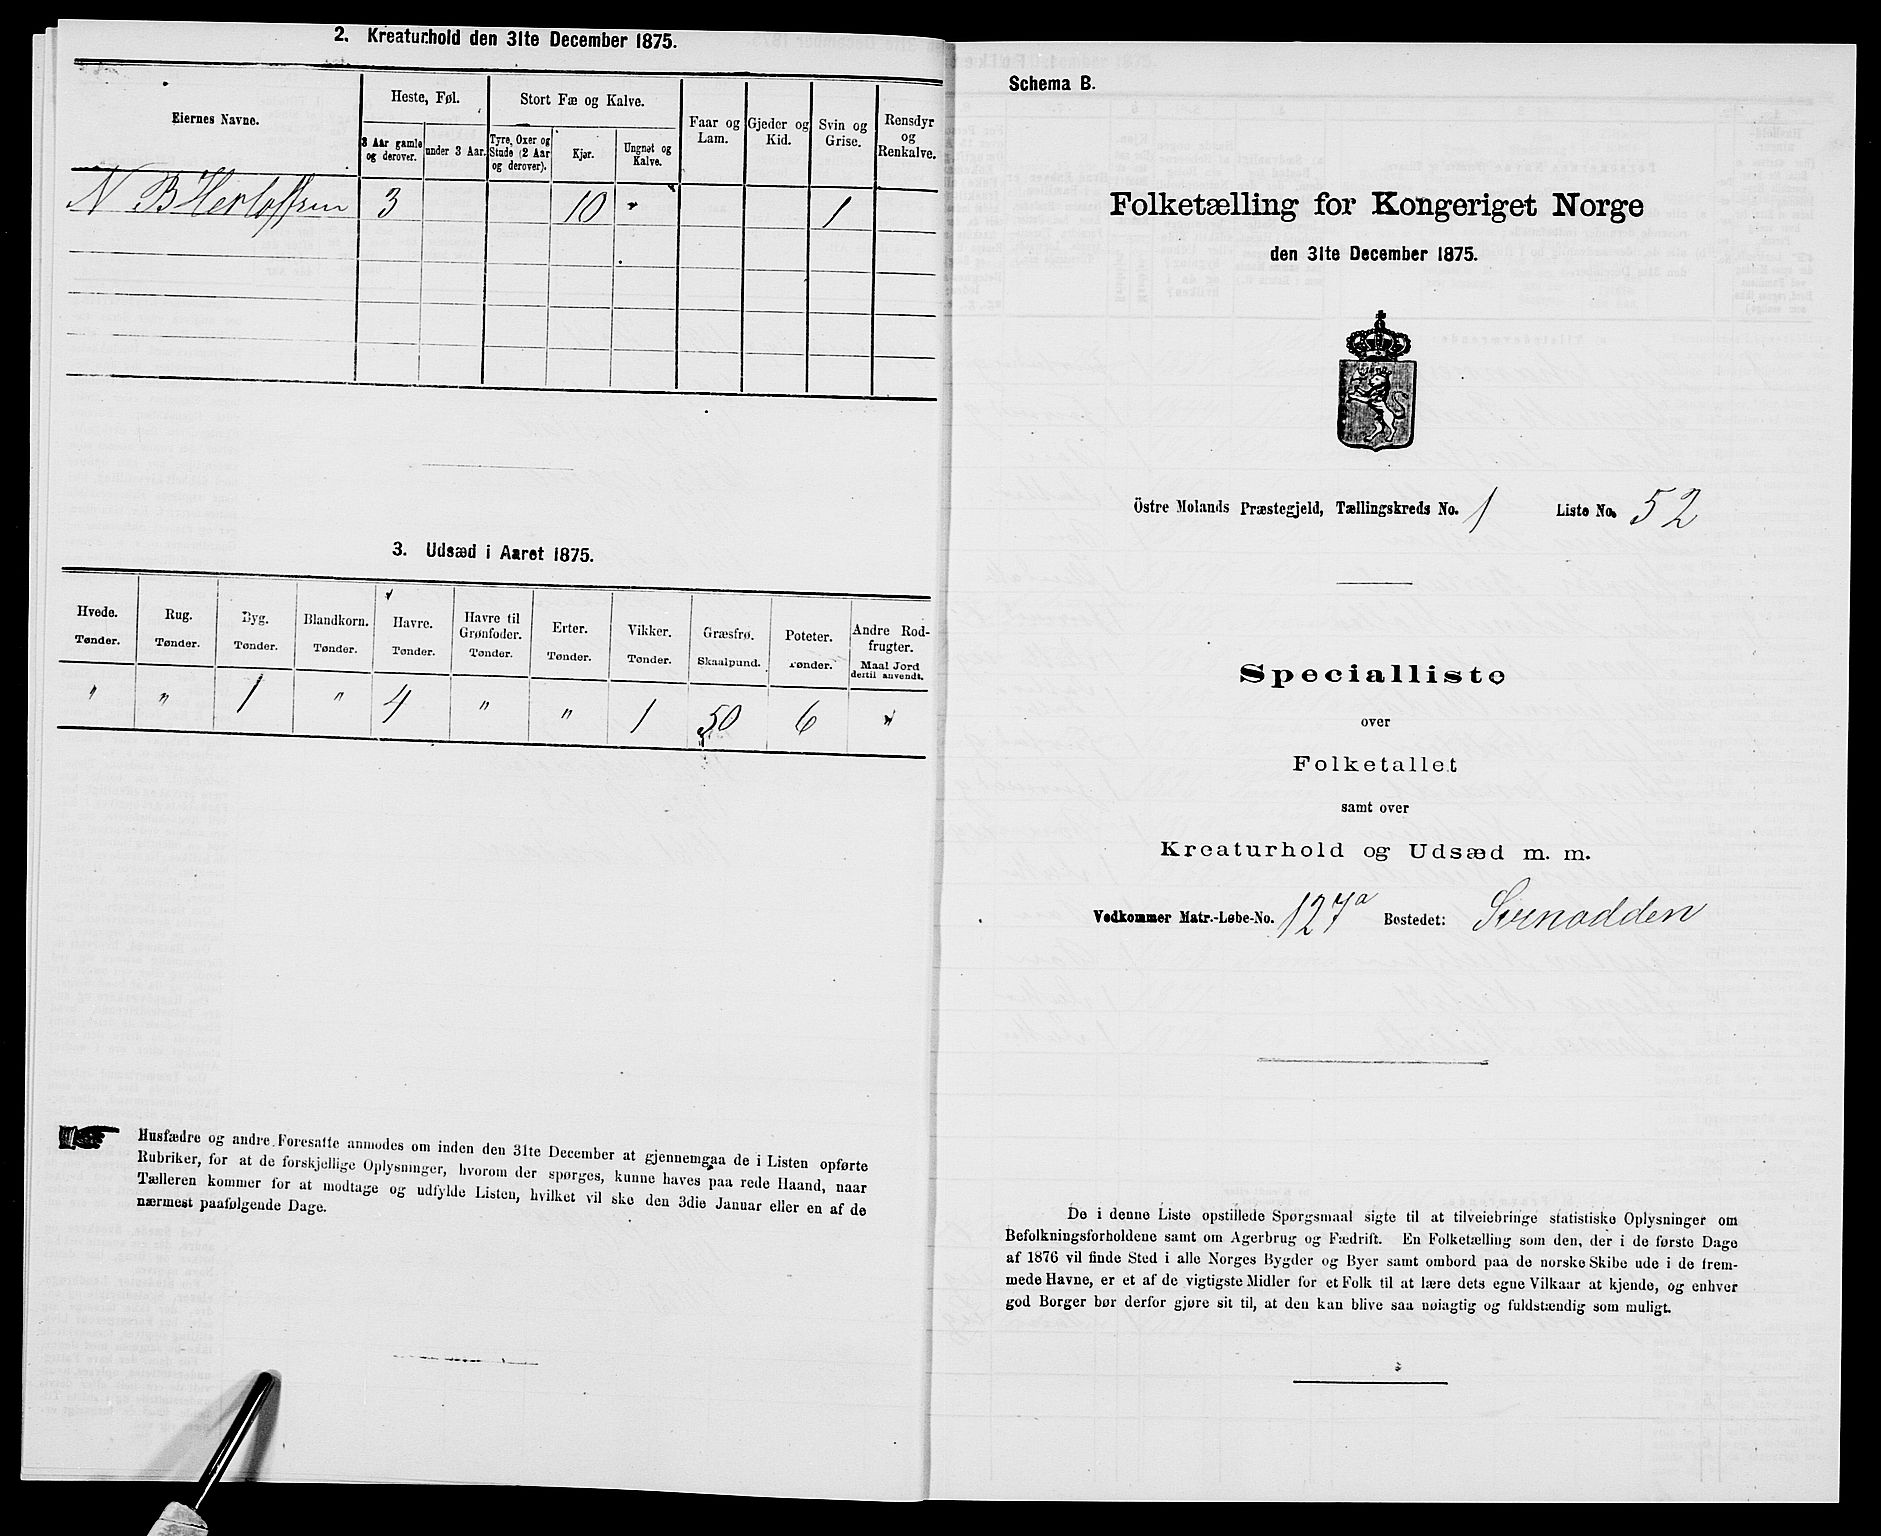 2. Kreaturhold den 31te December 1875.
Eiernes Navne.
Heste, Føl.
3 Aar gamle og derover.
under 3 Aar.
Stort Fæ og Kalve.
Tyre, Oxer og Stude (2 Aar og derover).
Kjør.
Ungnøt og Kalve.
Faar og Lam.
Gjeder og Kid.
Svin og Grise.
Rensdyr og Renkalve.
N B Herlofsen 3 10 " 1
3. Udsæd i Aaret 1875.
Hvede. Tønder.
Rug. Tønder.
Byg. Tønder.
Blandkorn. Tønder.
Havre. Tønder.
Havre til Grønfoder. Tønder.
Erter. Tønder.
Vikker. Tønder.
Græsfrø. Skaalpund.
Poteter. Tønder.
Andre Rodfrugter. Maal Jord dertil anvendt.
" " 1 " 4 " " 1 50 6 "
Husfædre og andre Foresatte anmodes om inden den 31te December at gjennemgaa de i Listen opførte
Rubriker, for at de forskjellige Oplysninger, hvorom der spørges, kunne haves paa rede Haand, naar
Tælleren kommer for at modtage og udfylde Listen, hvilket vil ske den 3die Januar eller en af de
nærmest paafølgende Dage.
Schema B.
Folketælling for Kongeriget Norge
den 31te December 1875.
Östre Molands Præstegjeld, Tællingskreds No. 1 Liste No. 52
Specialliste
over
Folketallet
samt over
Kreaturhold og Udsæd m. m.
Vedkommer Matr.-Løbe-No. 127a Bostedet: Svenodden
De i denne Liste opstillede Spørgsmaal sigte til at tilveiebringe statistiske Oplysninger om
Befolkningsforholdene samt om Agerbrug og Fædrift. En Folketælling som den, der i de første Dage
af 1876 vil finde Sted i alle Norges Bygder og Byer samt ombord paa de norske Skibe ude i de frem-
mede Havne, er et af de vigtigste Midler for et Folk til at lære dets egne Vilkaar at kjende, og enhver
god Borger bør derfor gjøre sit til, at den kan blive saa nøiagtig og fuldstændig som muligt.